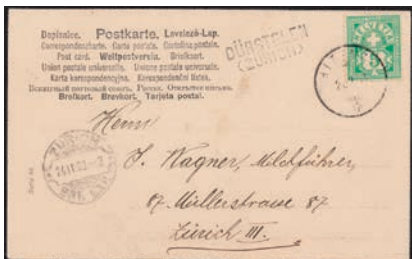 Dopisnice. Postkarte. Levelező-Lap.
Correspondenzkarte. Carte postale. Cartolina postale.
Post card. Weltpostverein. Briefkort.
Union postale universelle. Unione postale universale.
Karta korespondencyjna. Korespondenční lístek.
Всемирный почтовый союзъ. Россія. Открытое письмо.
Brefkort. Brevkort. Tarjeta postal.
DÜRSTELEN
(ZÜRICH)
HELVETIA
5
Herrn
J. Wagner, Milchführer,
87. Müllerstrasse 87
Zürich III.